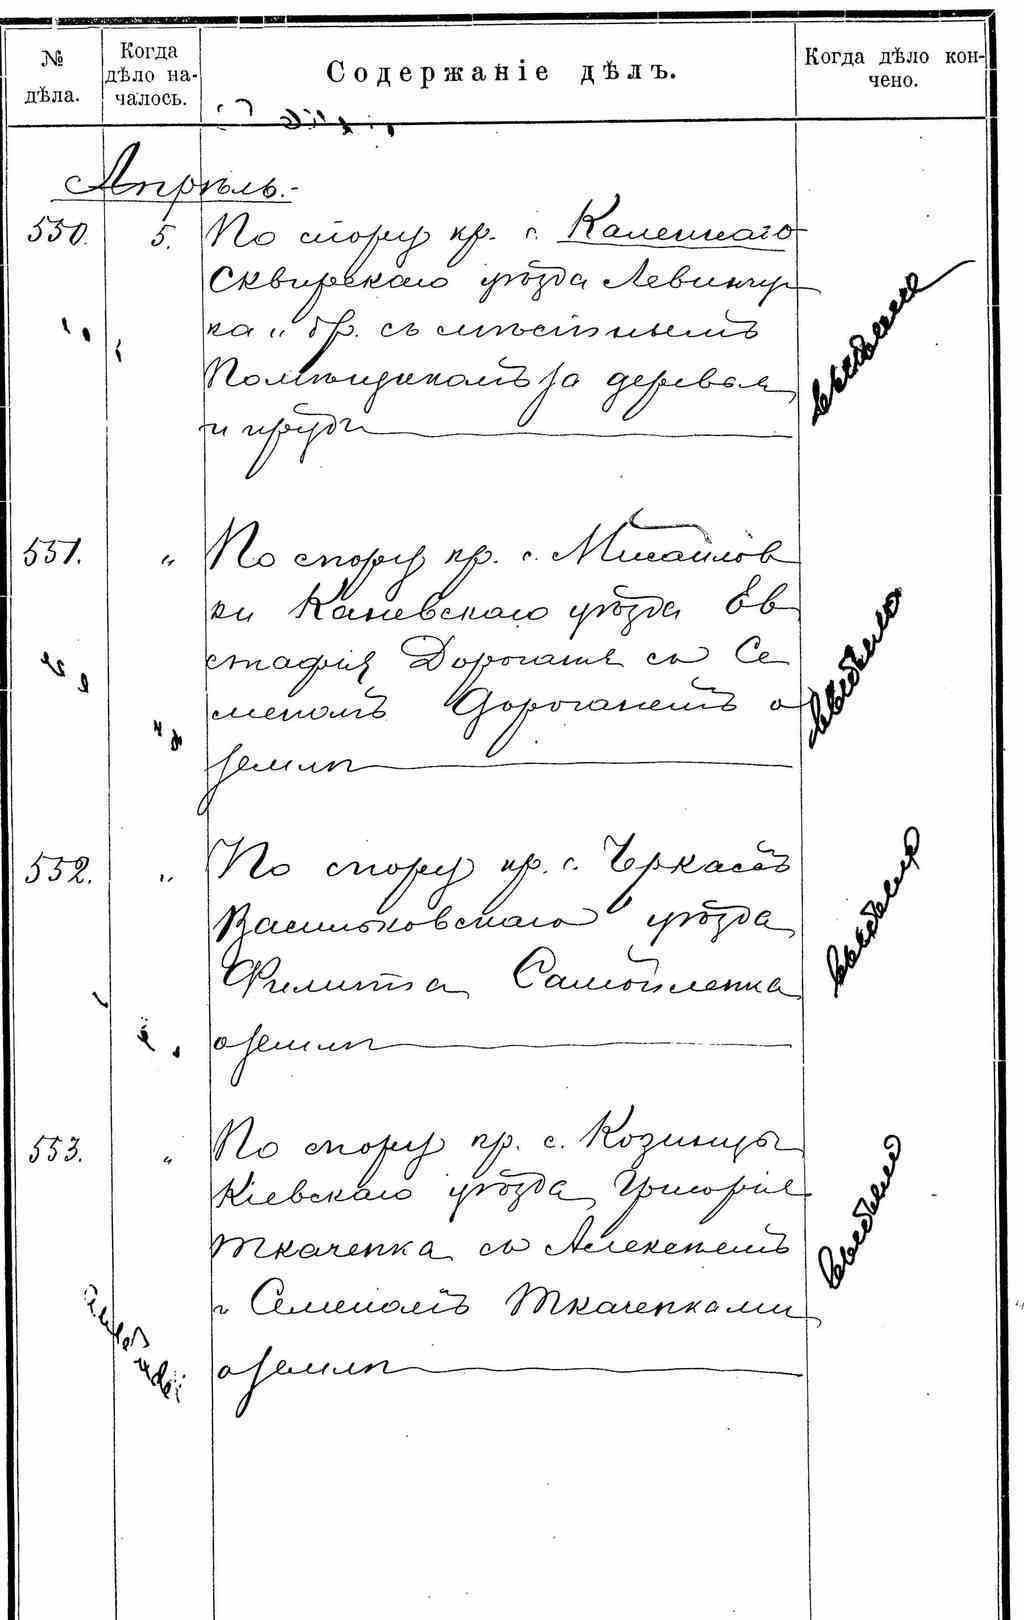 № дѣла.
Когда дѣло началось.
Содержаніе дѣлъ.
Когда дѣло кончено.
Апрѣль.
550. 5. По спору кр. с. Каленнаго
Сквирскаго уѣзда Левинчу
ка и др. съ мѣстнымъ
Помѣщикомъ за деревья
и пруды
551. " По спору кр. с. Михайлов
ки Каневскаго уѣзда Ев
стафія Дороганя съ Се
меномъ Дороганемъ о
землѣ
552. " По спору кр. с. Черкасъ
Васильковскаго уѣзда
Филиппа Самойленка
о землѣ
553. " По спору кр. с. Козинцы
Кіевскаго уѣзда Григорія
Ткаченка съ Алексѣемъ
и Семеномъ Ткаченками
о землѣ